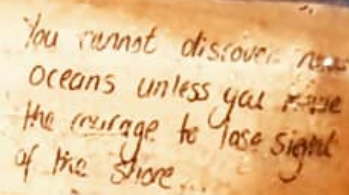 You cannot discover new
oceans unless you have
the courage to lose sight
of the shore...